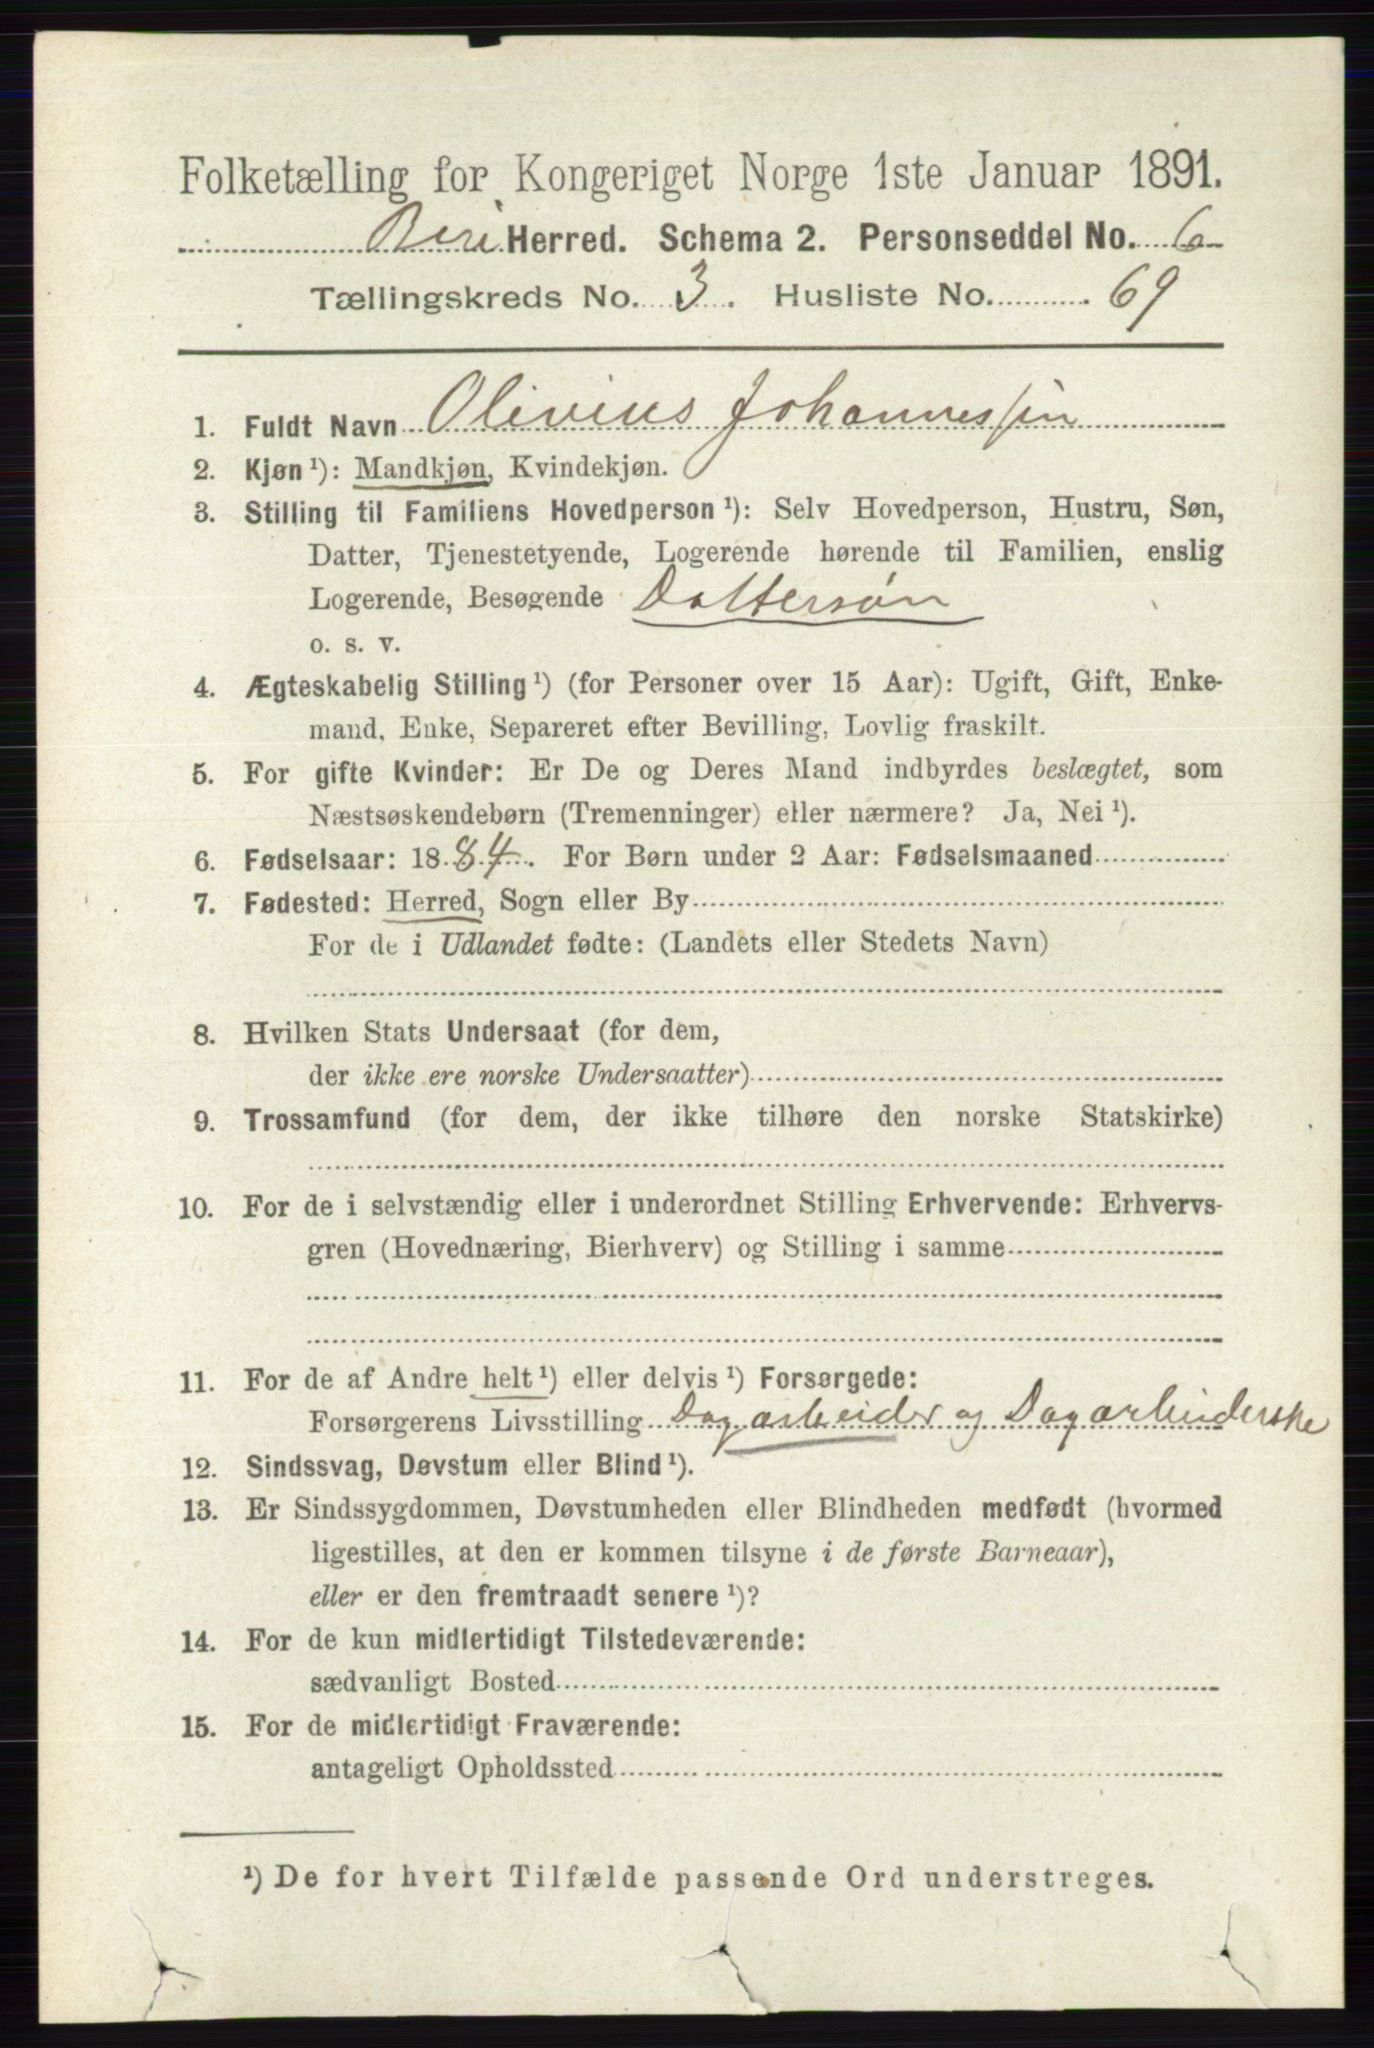 Folketælling for Kongeriget Norge 1ste Januar 1891.
Biri Herred. Schema 2. Personseddel No. 6
Tællingskreds No. 3. Husliste No. 69
1. Fuldt Navn Olivius Johannessen
2. Kjøn¹): Mandkjøn, Kvindekjøn.
3. Stilling til Familiens Hovedperson¹): Selv Hovedperson, Hustru, Søn,
Datter, Tjenestetyende, Logerende hørende til Familien, enslig
Logerende, Besøgende Dattersøn
o. s. v.
4. Ægteskabelig Stilling¹) (for Personer over 15 Aar): Ugift, Gift, Enke-
mand, Enke, Separeret efter Bevilling, Lovlig fraskilt.
5. For gifte Kvinder: Er De og Deres Mand indbyrdes beslægtet, som
Næstsøskendebørn (Tremenninger) eller nærmere? Ja, Nei¹).
6. Fødselsaar: 1884. For Børn under 2 Aar: Fødselsmaaned
7. Fødested: Herred, Sogn eller By
For de i Udlandet fødte: (Landets eller Stedets Navn)
8. Hvilken Stats Undersaat (for dem,
der ikke ere norske Undersaatter)
9. Trossamfund (for dem, der ikke tilhøre den norske Statskirke)
10. For de i selvstændig eller i underordnet Stilling Erhvervende: Erhvervs-
gren (Hovednæring, Bierhverv) og Stilling i samme
11. For de af Andre helt¹) eller delvis¹) Forsørgede:
Forsørgerens Livsstilling Dagarbeider og Dagarbeiderske
12. Sindssvag, Døvstum eller Blind¹).
13. Er Sindssygdommen, Døvstumheden eller Blindheden medfødt (hvormed
ligestilles, at den er kommen tilsyne i de første Barneaar),
eller er den fremtraadt senere¹)?
14. For de kun midlertidigt Tilstedeværende:
sædvanligt Bosted
15. For de midlertidigt Fraværende:
antageligt Opholdssted
¹) De for hvert Tilfælde passende Ord understreges.